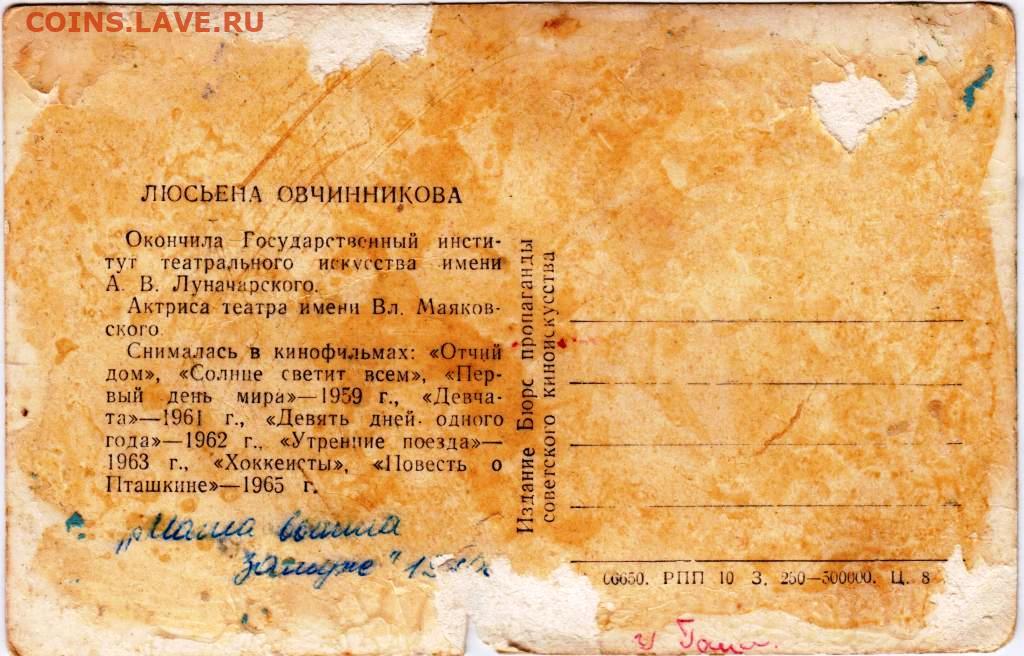 COINS.LAVE.РУ
ЛЮСЬЕНА ОВЧИННИКОВА
Окончила Государственный инсти-
тут театрального искусства имени
А. В. Луначарского.
Актриса театра имени Вл. Маяков-
ского.
Снималась в кинофильмах: «Отчий
дом», «Солнце светит всем», «Пер-
вый день мира»—1959 г., «Девча-
та»—1961 г., «Девять дней одного
года»—1962 г., «Утренние поезда»—
1963 г., «Хоккеисты», «Повесть о
Пташкине»—1965 г.
„Мама вышла
замуж"
Издание Бюро пропаганды
советского киноискусства
06650. РПП 10 З. 250—500000. Ц. 8